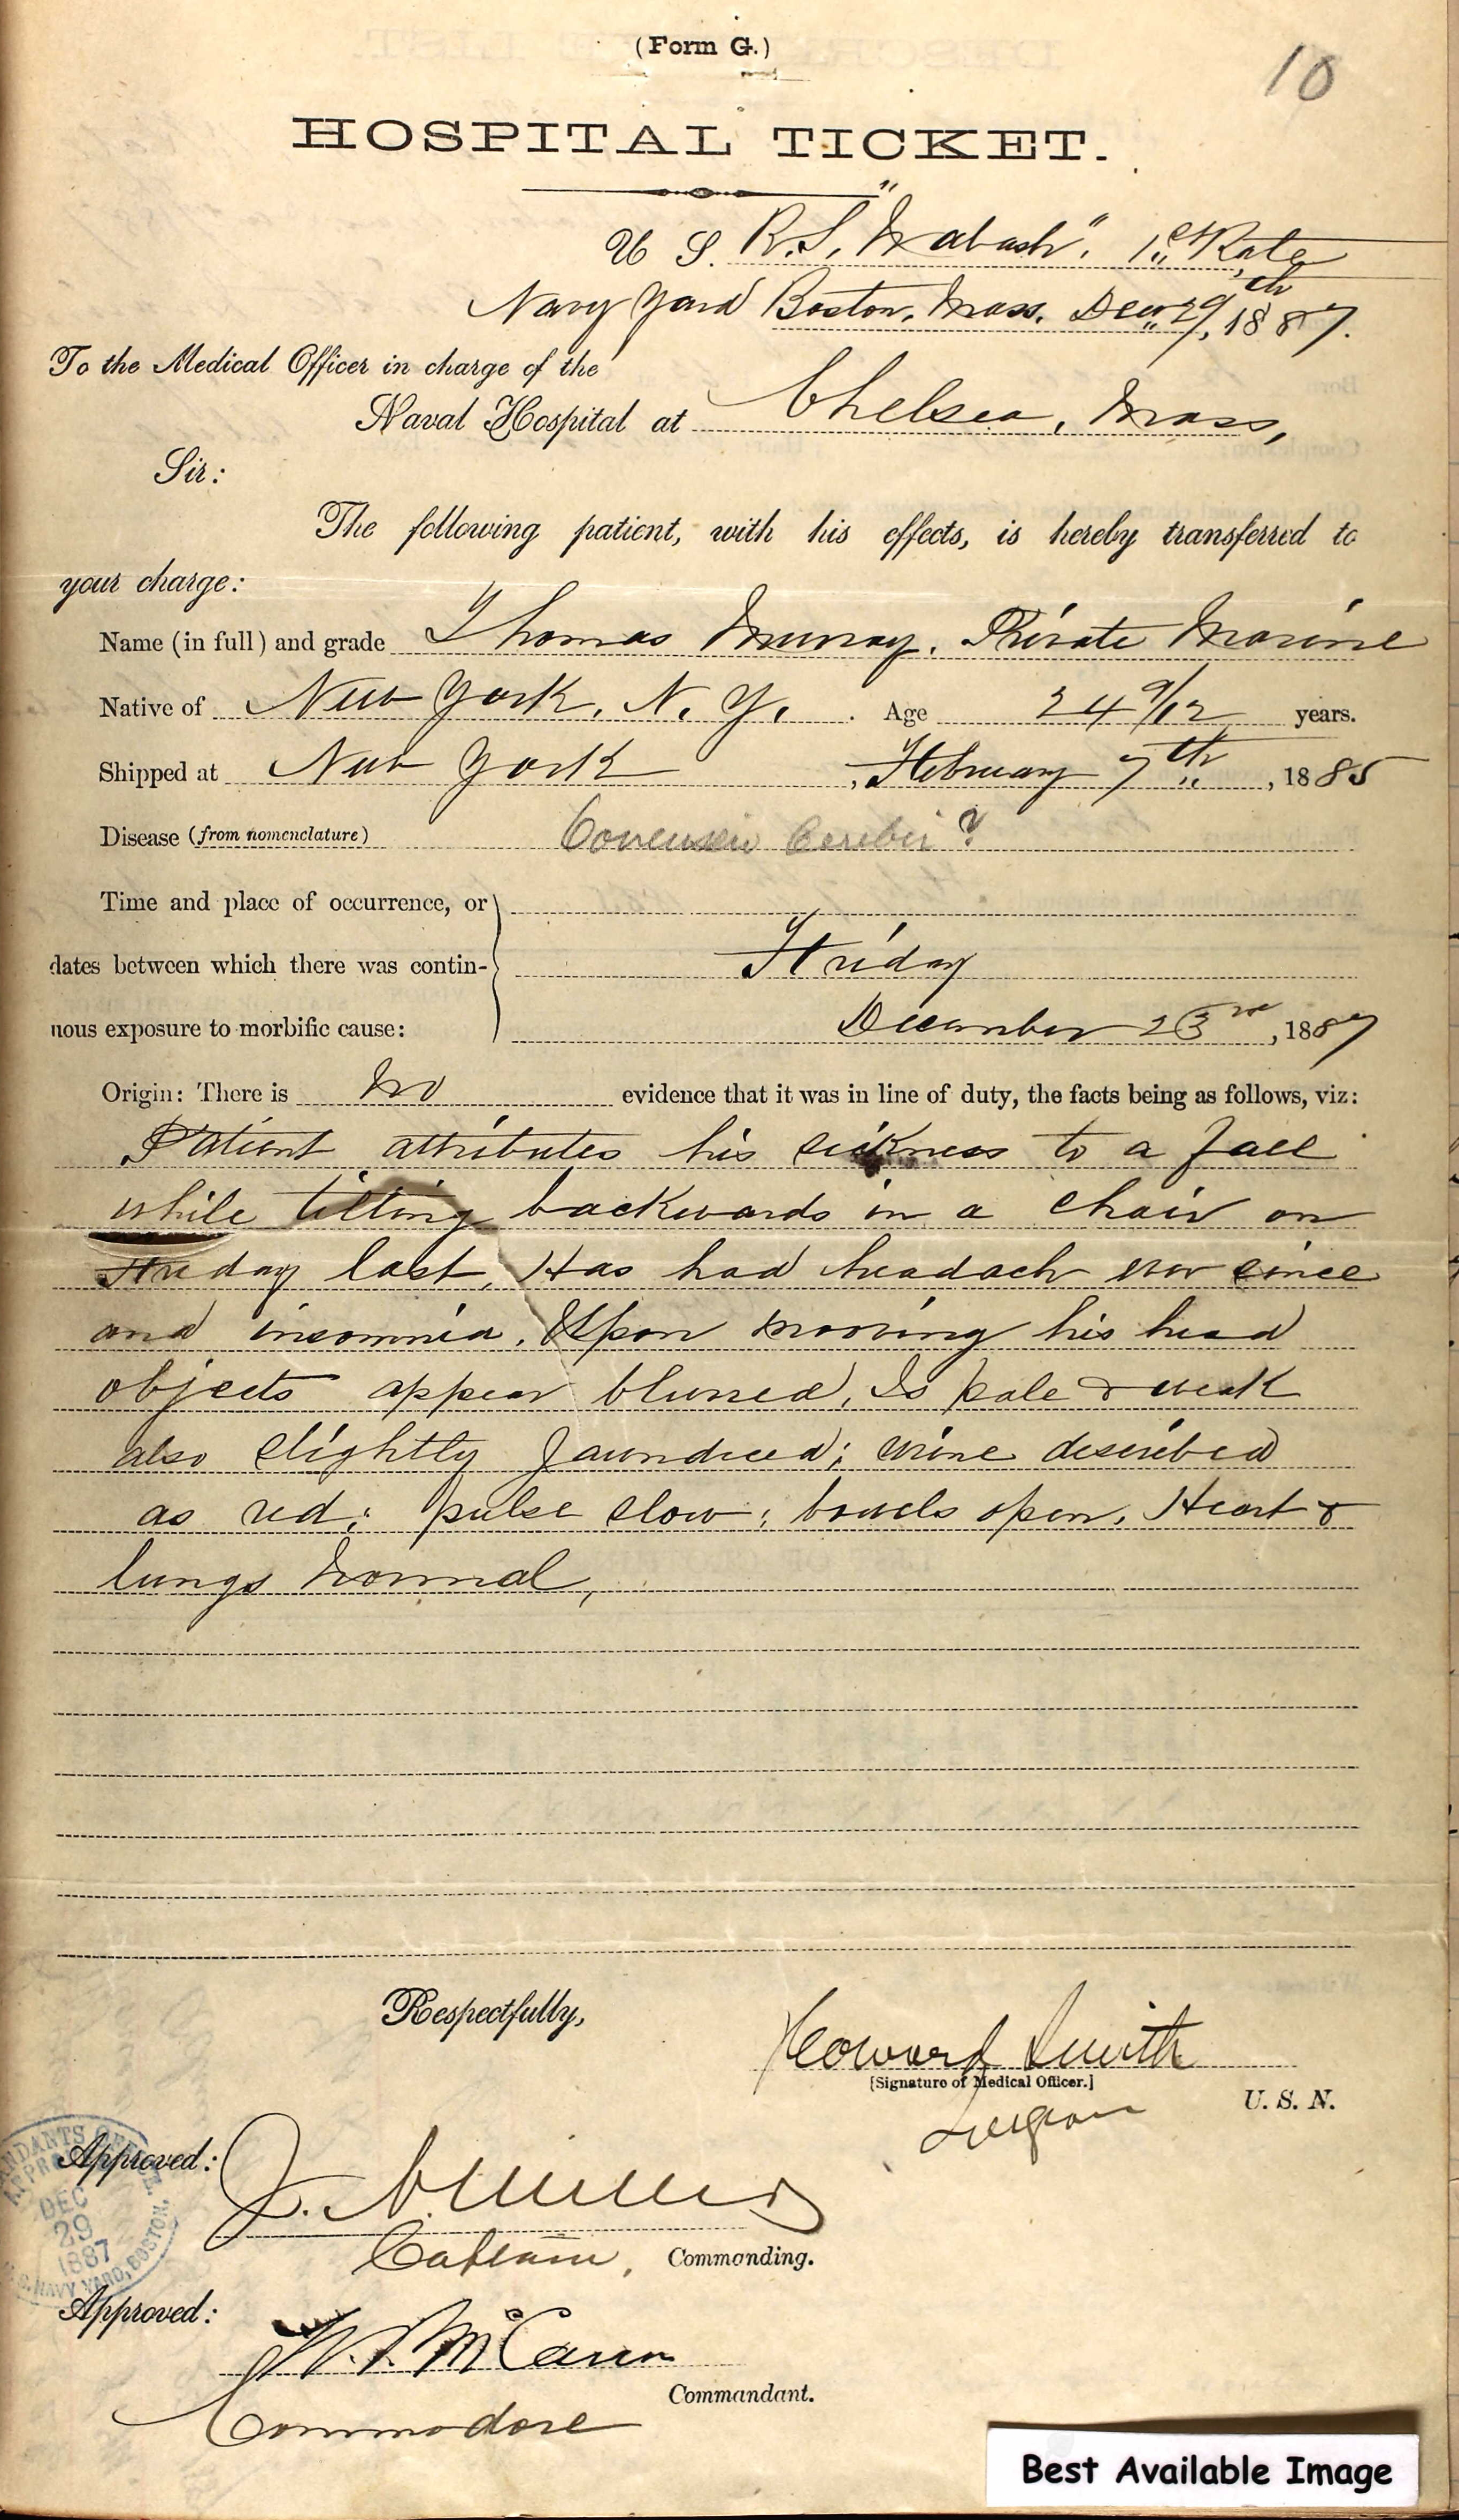 (Form G.)
10
HOSPITAL TICKET.
U. S. R. S. "Wabash". 1st Rate
Navy Yard Boston, Mass. Dec. 29th, 1887.
To the Medical Officer in charge of the
Naval Hospital at Chelsea, Mass,
Sir:
The following patient, with his effects, is hereby transferred to
your charge:
Name (in full) and grade Thomas Murray. Private Marine
Native of New York, N. Y. . Age 24 9/12 years.
Shipped at New York , February 7th, 1885
Disease (from nomenclature) Cerebri ?
Time and place of occurrence, or
dates between which there was contin- Friday
uous exposure to morbific cause: December 23rd, 1887
Origin: There is no evidence that it was in line of duty, the facts being as follows, viz:
Patient attributes his sickness to a fall
while tilting backwards in a chair on
Friday last. Has had headach ever since
and insomnia. Upon mooving his head
objects appear blurred. Is pale & weak
also slightly jaundiced; urine described
as red; pulse slow; bowels open. Heart &
lungs normal,
Respectfully,
Howard Smith
[Signature of Medical Officer.]
Surgeon U. S. N.
Approved:
Captain, Commanding.
DEC
29
1887
NAVY YARD, BOSTON.
Approved:
McCann
Commandant.
Commodore
Best Available Image